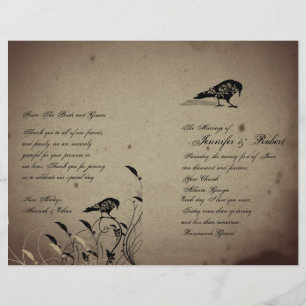 From The Bride and Groom
Thank you to all of our friends
and family, we are sincerely
grateful for your presence in
our lives and thank you for
joining us celebrate our special day
Love Always,
Hannah & Ethan
The Marriage of
Jennifer & Robert
Saturday the twenty first of June
two thousand and fourteen
Your Church
Atlanta, Georgia
Each day I love you more
Today more than yesterday
and less than tomorrow
Rosemonde Gerard